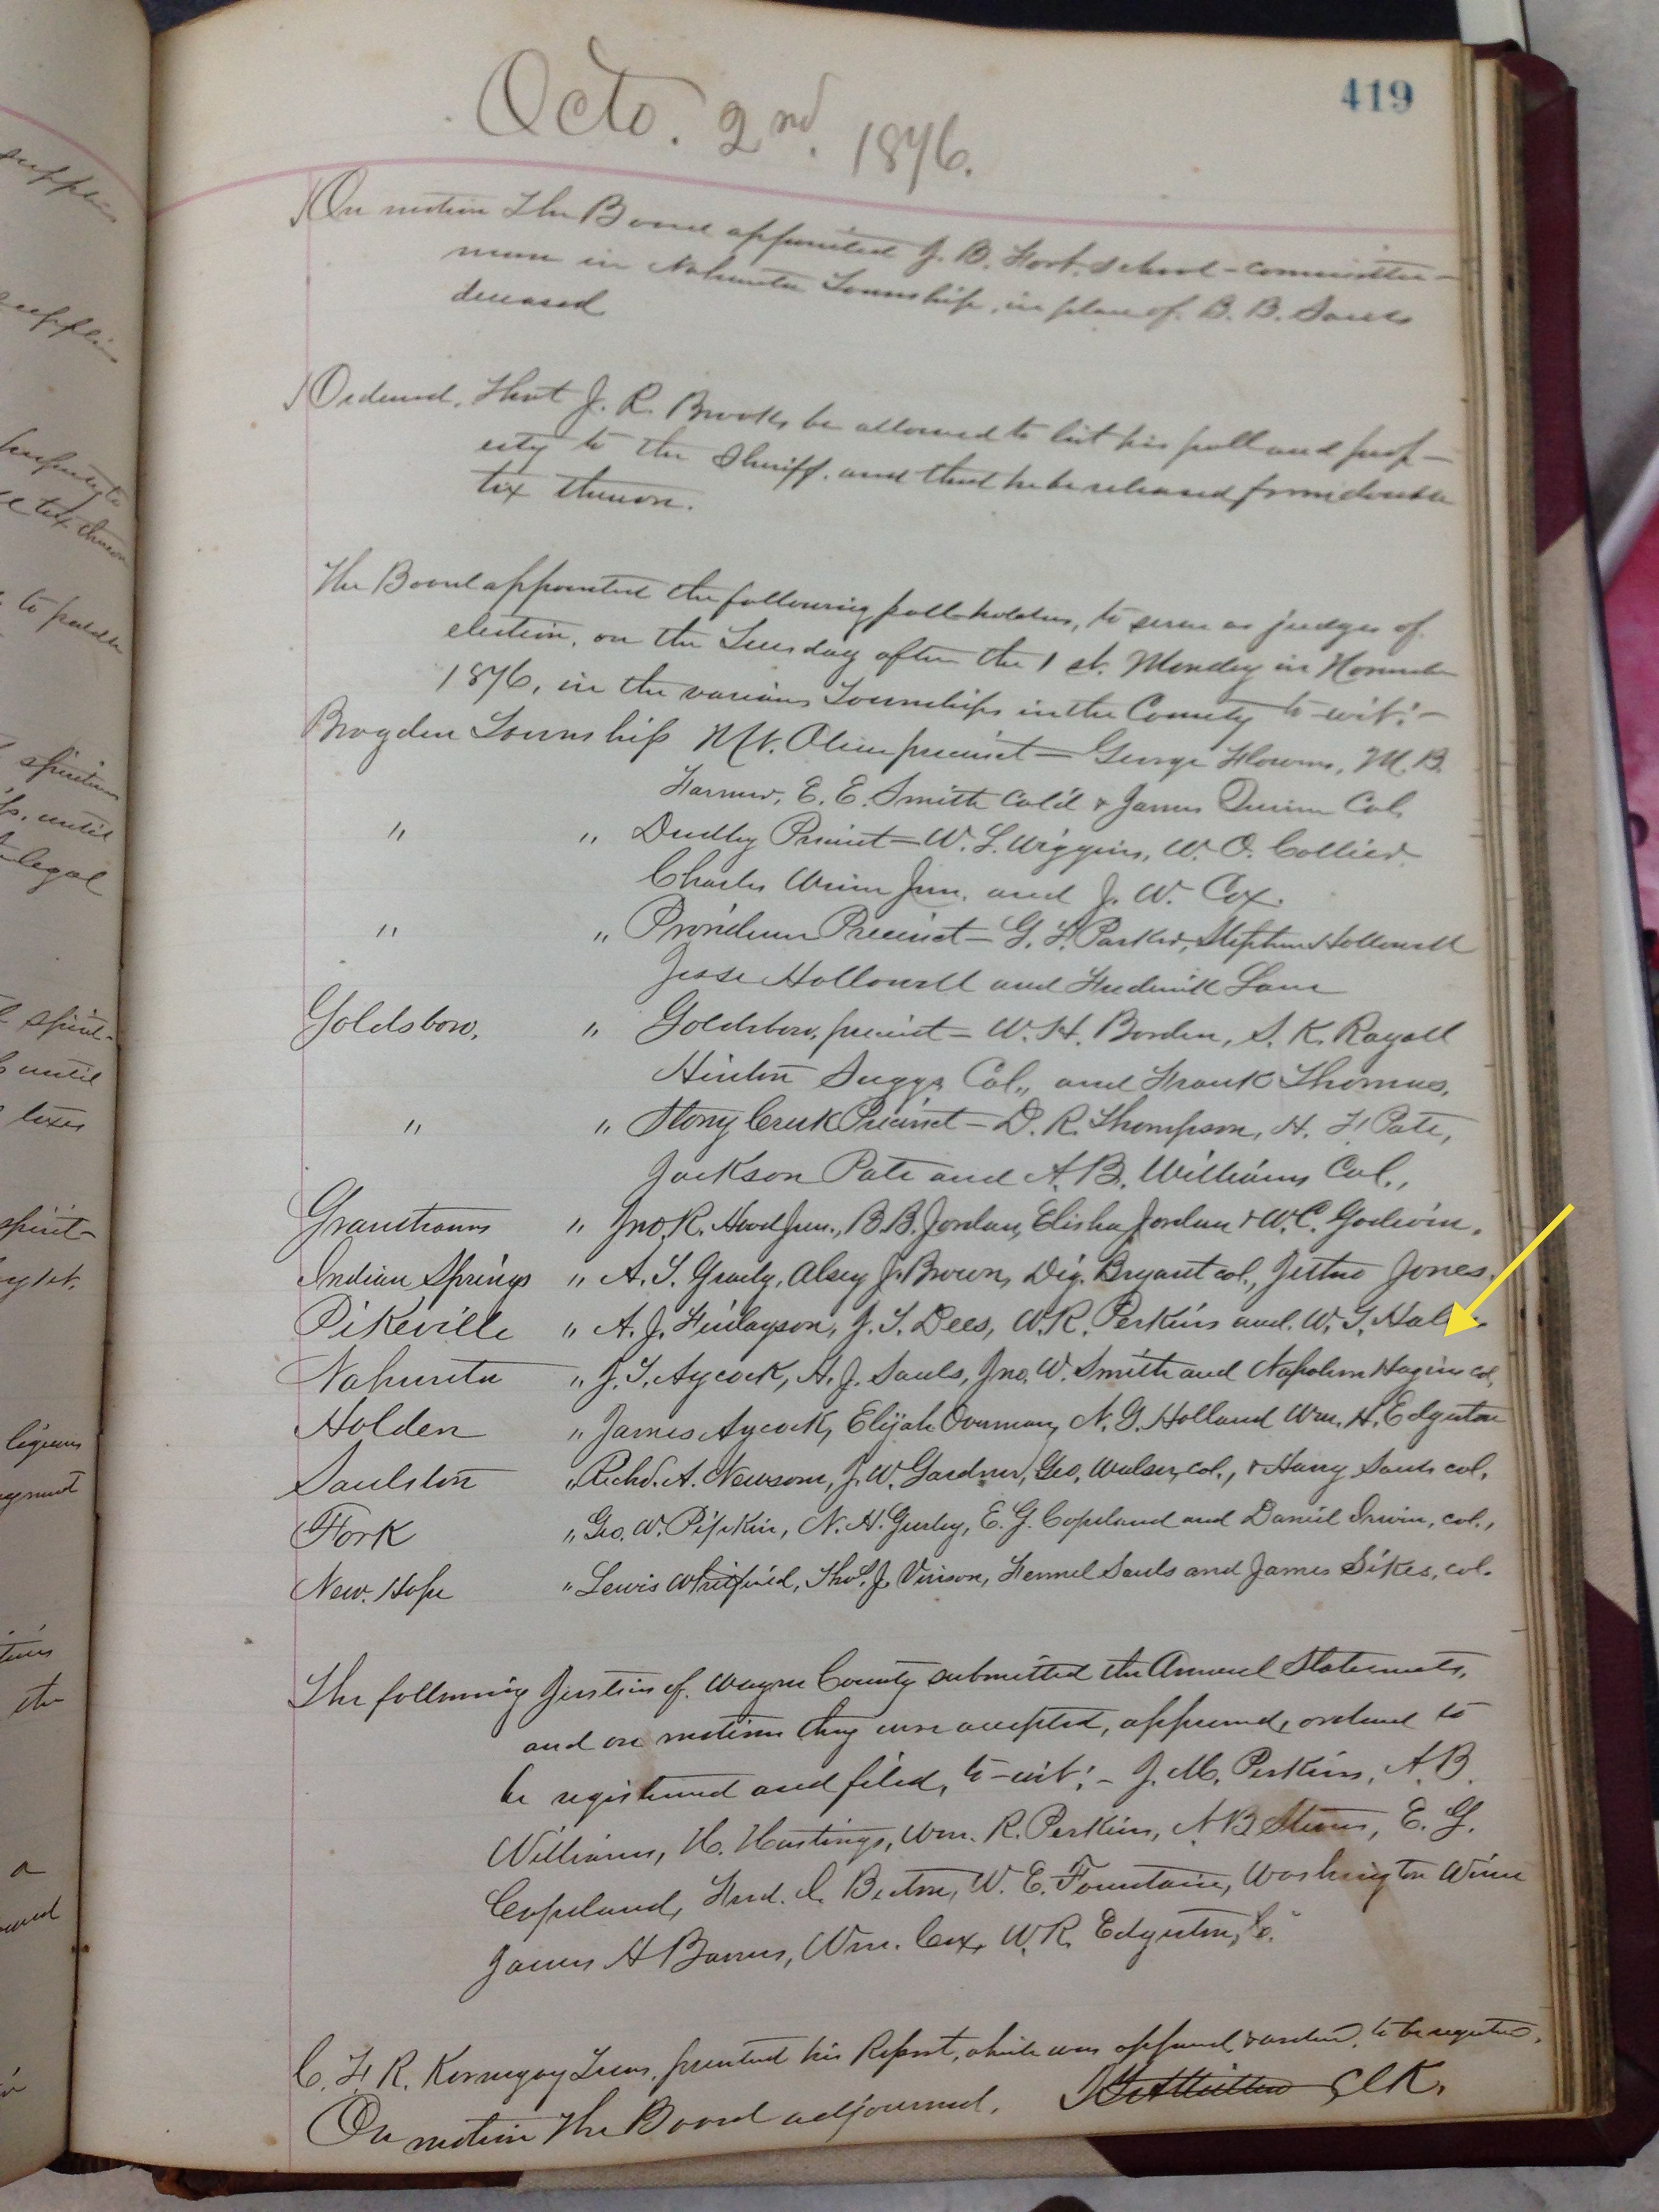 419
Octo. 2nd. 1876.
On motion The Board appointed J. B. Fort, school-committee-
man in Nahunta Township, in place of B. B. Sauls
deceased
Ordered, That J. R. Brooks, be allowed to list his poll and prop-
erty to the Sheriff, and that he be released from double
tax thereon.
The Board appointed the following poll-holders, to serve as judges of
election, on the Tuesday after the 1st. Monday in November
1876, in the various Townships in the County to-wit:-
Brogden Township Mt. Olive precinct - George Flowers, M. B.
Farmer, E. E. Smith Col'd & James Col.
" " Dudley Precinct - W. L. Wiggins, W. O. Collier
Charles Winn Jun. and J. W. Cox.
" " Providence Precinct - G. F. Parker, Stephen Hollowell
Jesse Hollowell and Frederick Lane
Goldsboro, " Goldsboro, precinct - W. H. Borden, S. K. Rayall
Hinton Suggs Col., and Frank Thomas,
" " Stony Creek Precinct - D. R. Thompson, H. F. Pate,
Jackson Pate and A. B. Williams Col.,
Granthams " Jno. R. Hood Jun., B. B. Jordan, Elisha Jordan & W. C. Godwin,
Indian Springs " A. S. Grady, Alsey J. Brown, Dig. Bryant col., Jethro Jones,
Pikeville " A. J. Finlayson, J. T. Dees, W. R. Perkins and. W. T.
Nahunta " J. T. Aycock, A. J. Sauls, Jno. W. Smith and Napoleon Hagins col,
Holden " James Aycock, Elijah Overman, N. G. Holland Wm. H. Edgerton
Saulston " Richd. A. Newsom, J. W. Gardner, Geo, col., & Harry Sauls col,
Fork " Geo. W. Pipkin, N. H. Gurley, E. G. Copeland and Daniel Irwin, col.,
New. Hope " Lewis Whitfield, Thos. J. Vinson, Fennel Sauls and James Sikes, col.
The following Justices of. Wayne County submitted the Annual Statements,
and on motion they were accepted, approved, ordered to
be registered and filed, to-wit:- J. M. Perkins, A. B.
Williams, H. Hastings, Wm. R. Perkins, A B Stevens, E. G.
Copeland, Fred. Becton, W. E. Fountain, Washington Winn
James H Barnes, Wm. Cox, W. R. Edgerton,
C. F. R. Kornegay Treas. presented his Report, which was approved & ordered, to be registered,
On motion The Board adjourned. Clk.